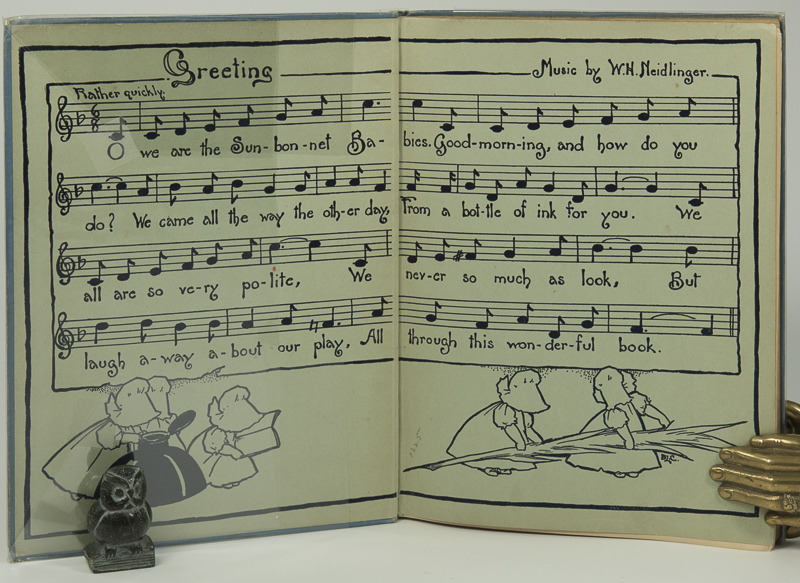 Greeting
Music by W.H. Neidlinger.
Rather quickly.
O we are the Sun-bon-net Ba-bies. Good-morn-ing, and how do you
do? We came all the way the oth-er day, From a bot-tle of ink for you. We
all are so ve-ry po-lite, We nev-er so much as look, But
laugh a-way a-bout our play, All through this won-der-ful book.
BLC